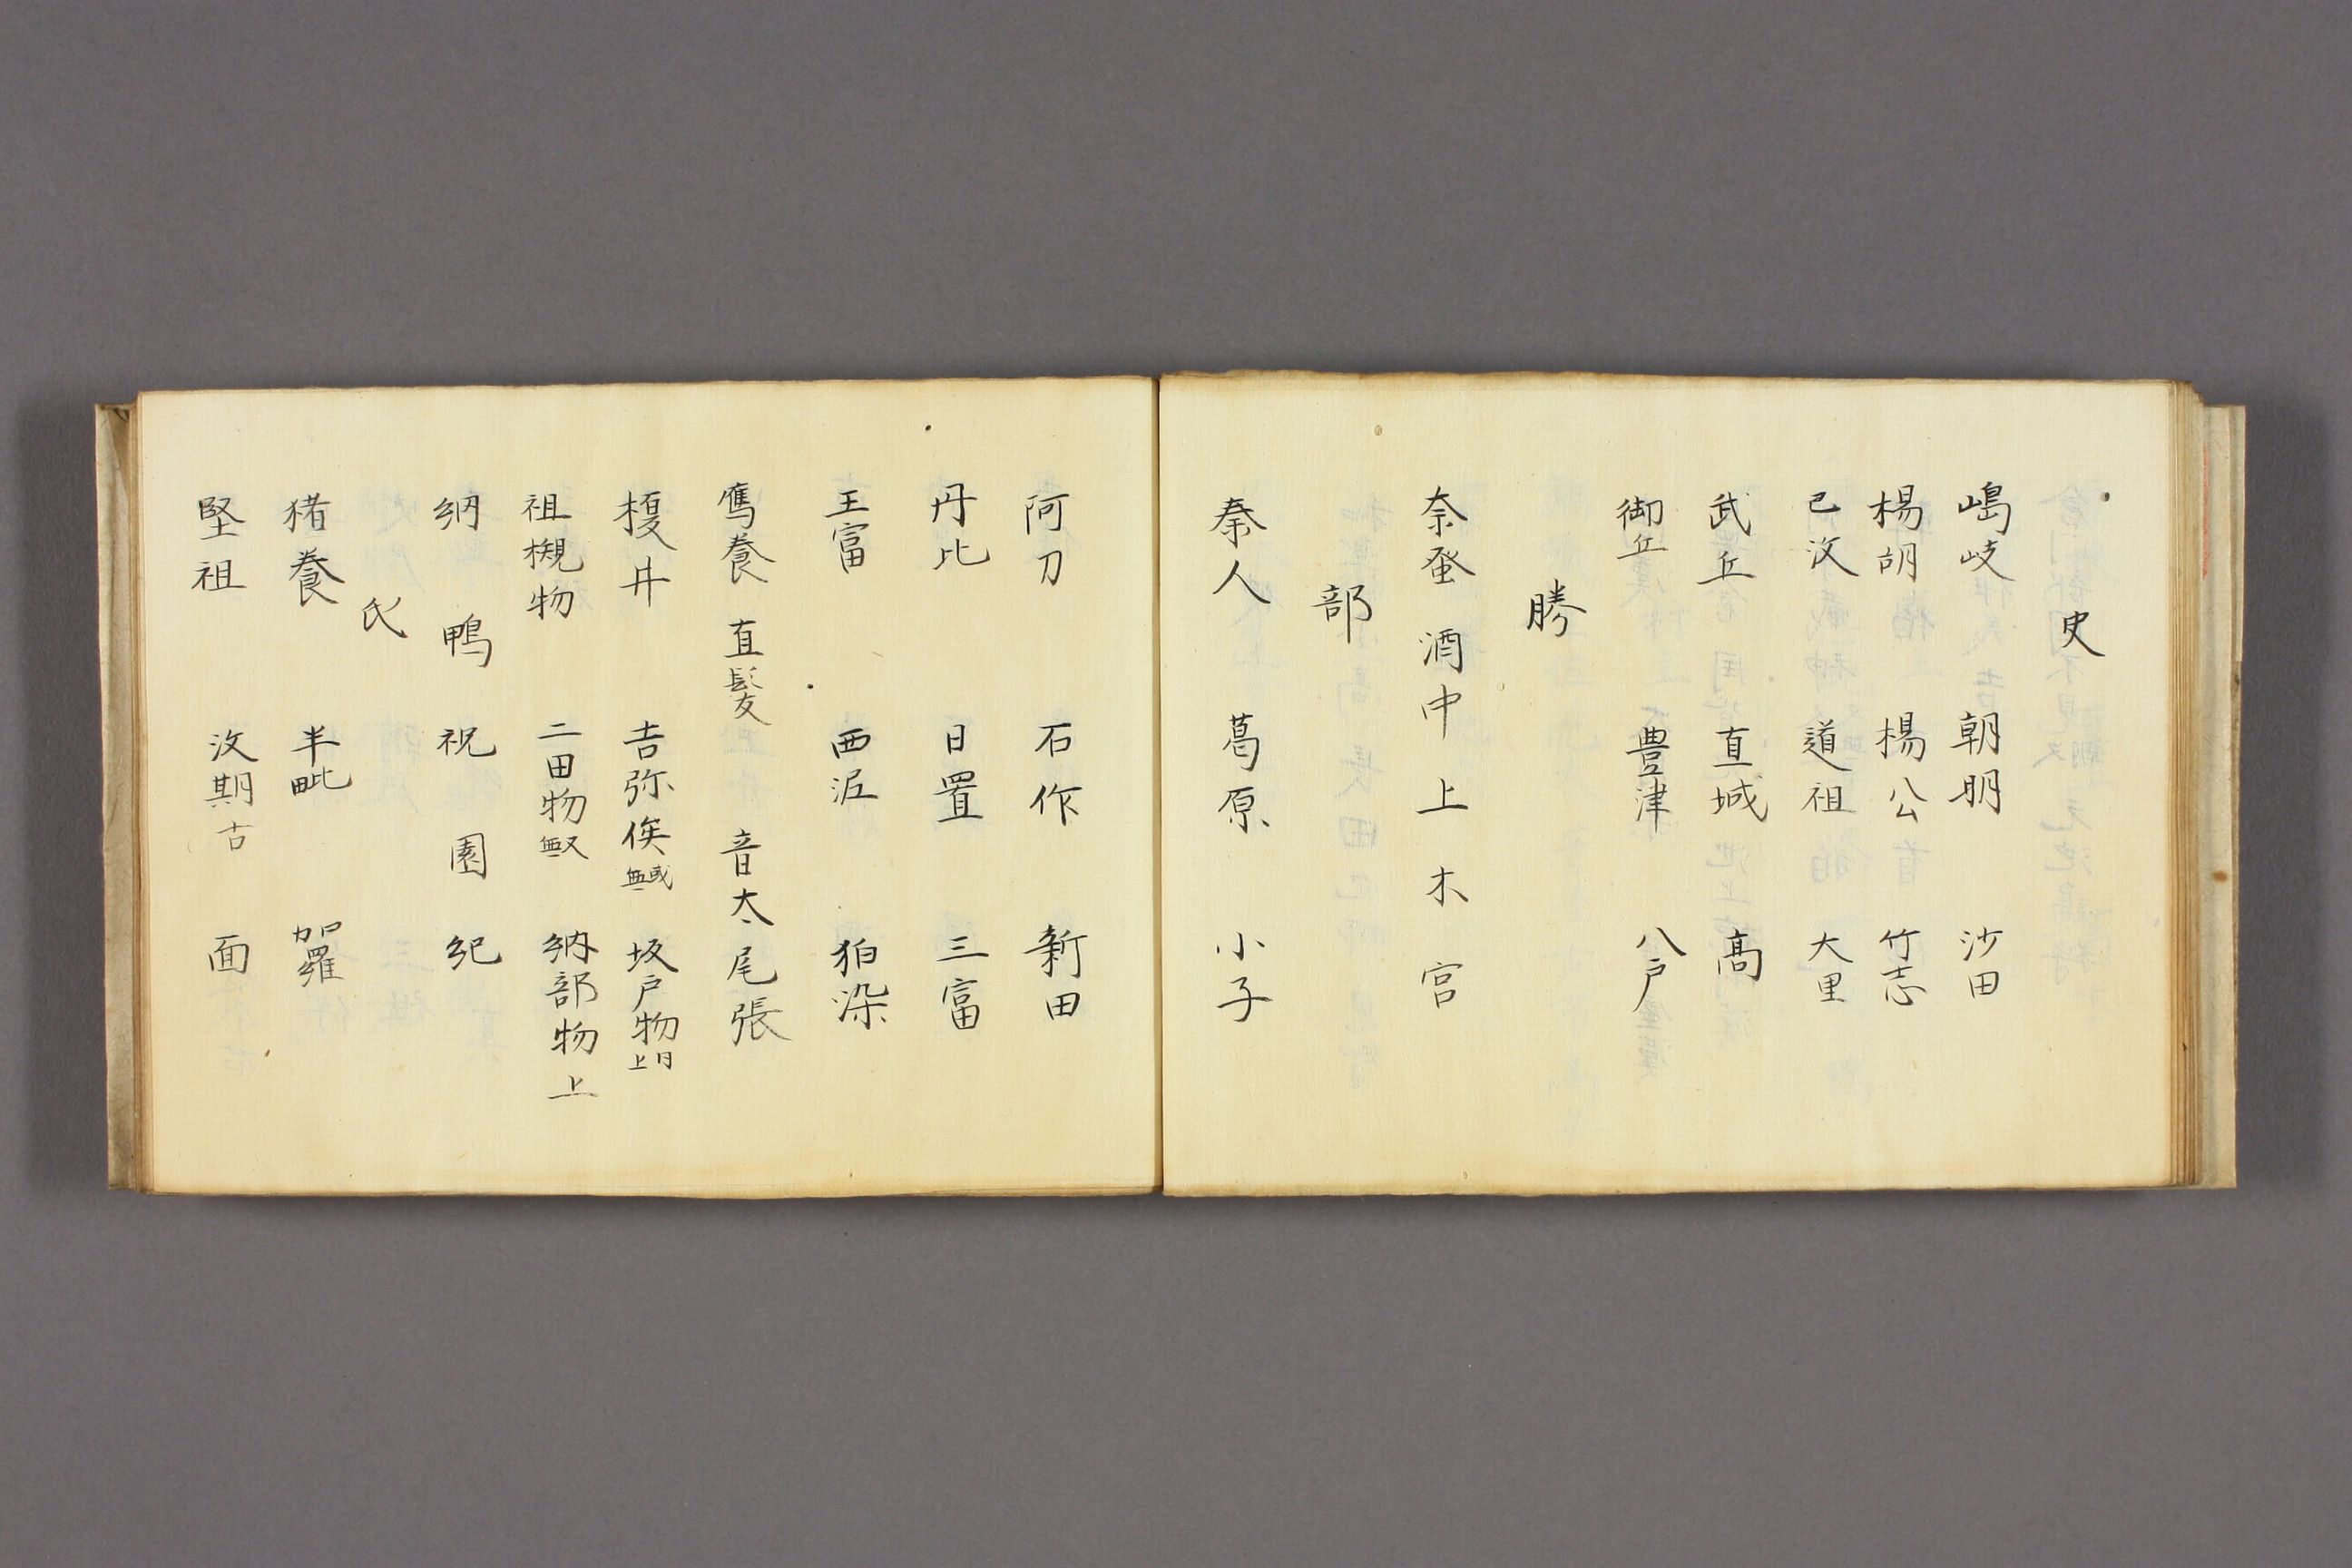 史
嶋岐 朝明 沙田
楊胡 楊公 竹志
己汶 道祖 大里
武丘 直城 髙
御丘 豊津 八戸
勝
奈癸 酒中 上 木 宮
部
秦人 葛原 小子
阿刀 石作 新田
丹比 日置 三富
王富 西泥 狛染
鷹養 直髪 音太 尾張
榎井 吉弥侯 坂戸物
祖槻物 二田物 納部物 上
納 鴨 祝 園 紀
氏
猪養 半毗 加羅
堅祖 汶期古 面